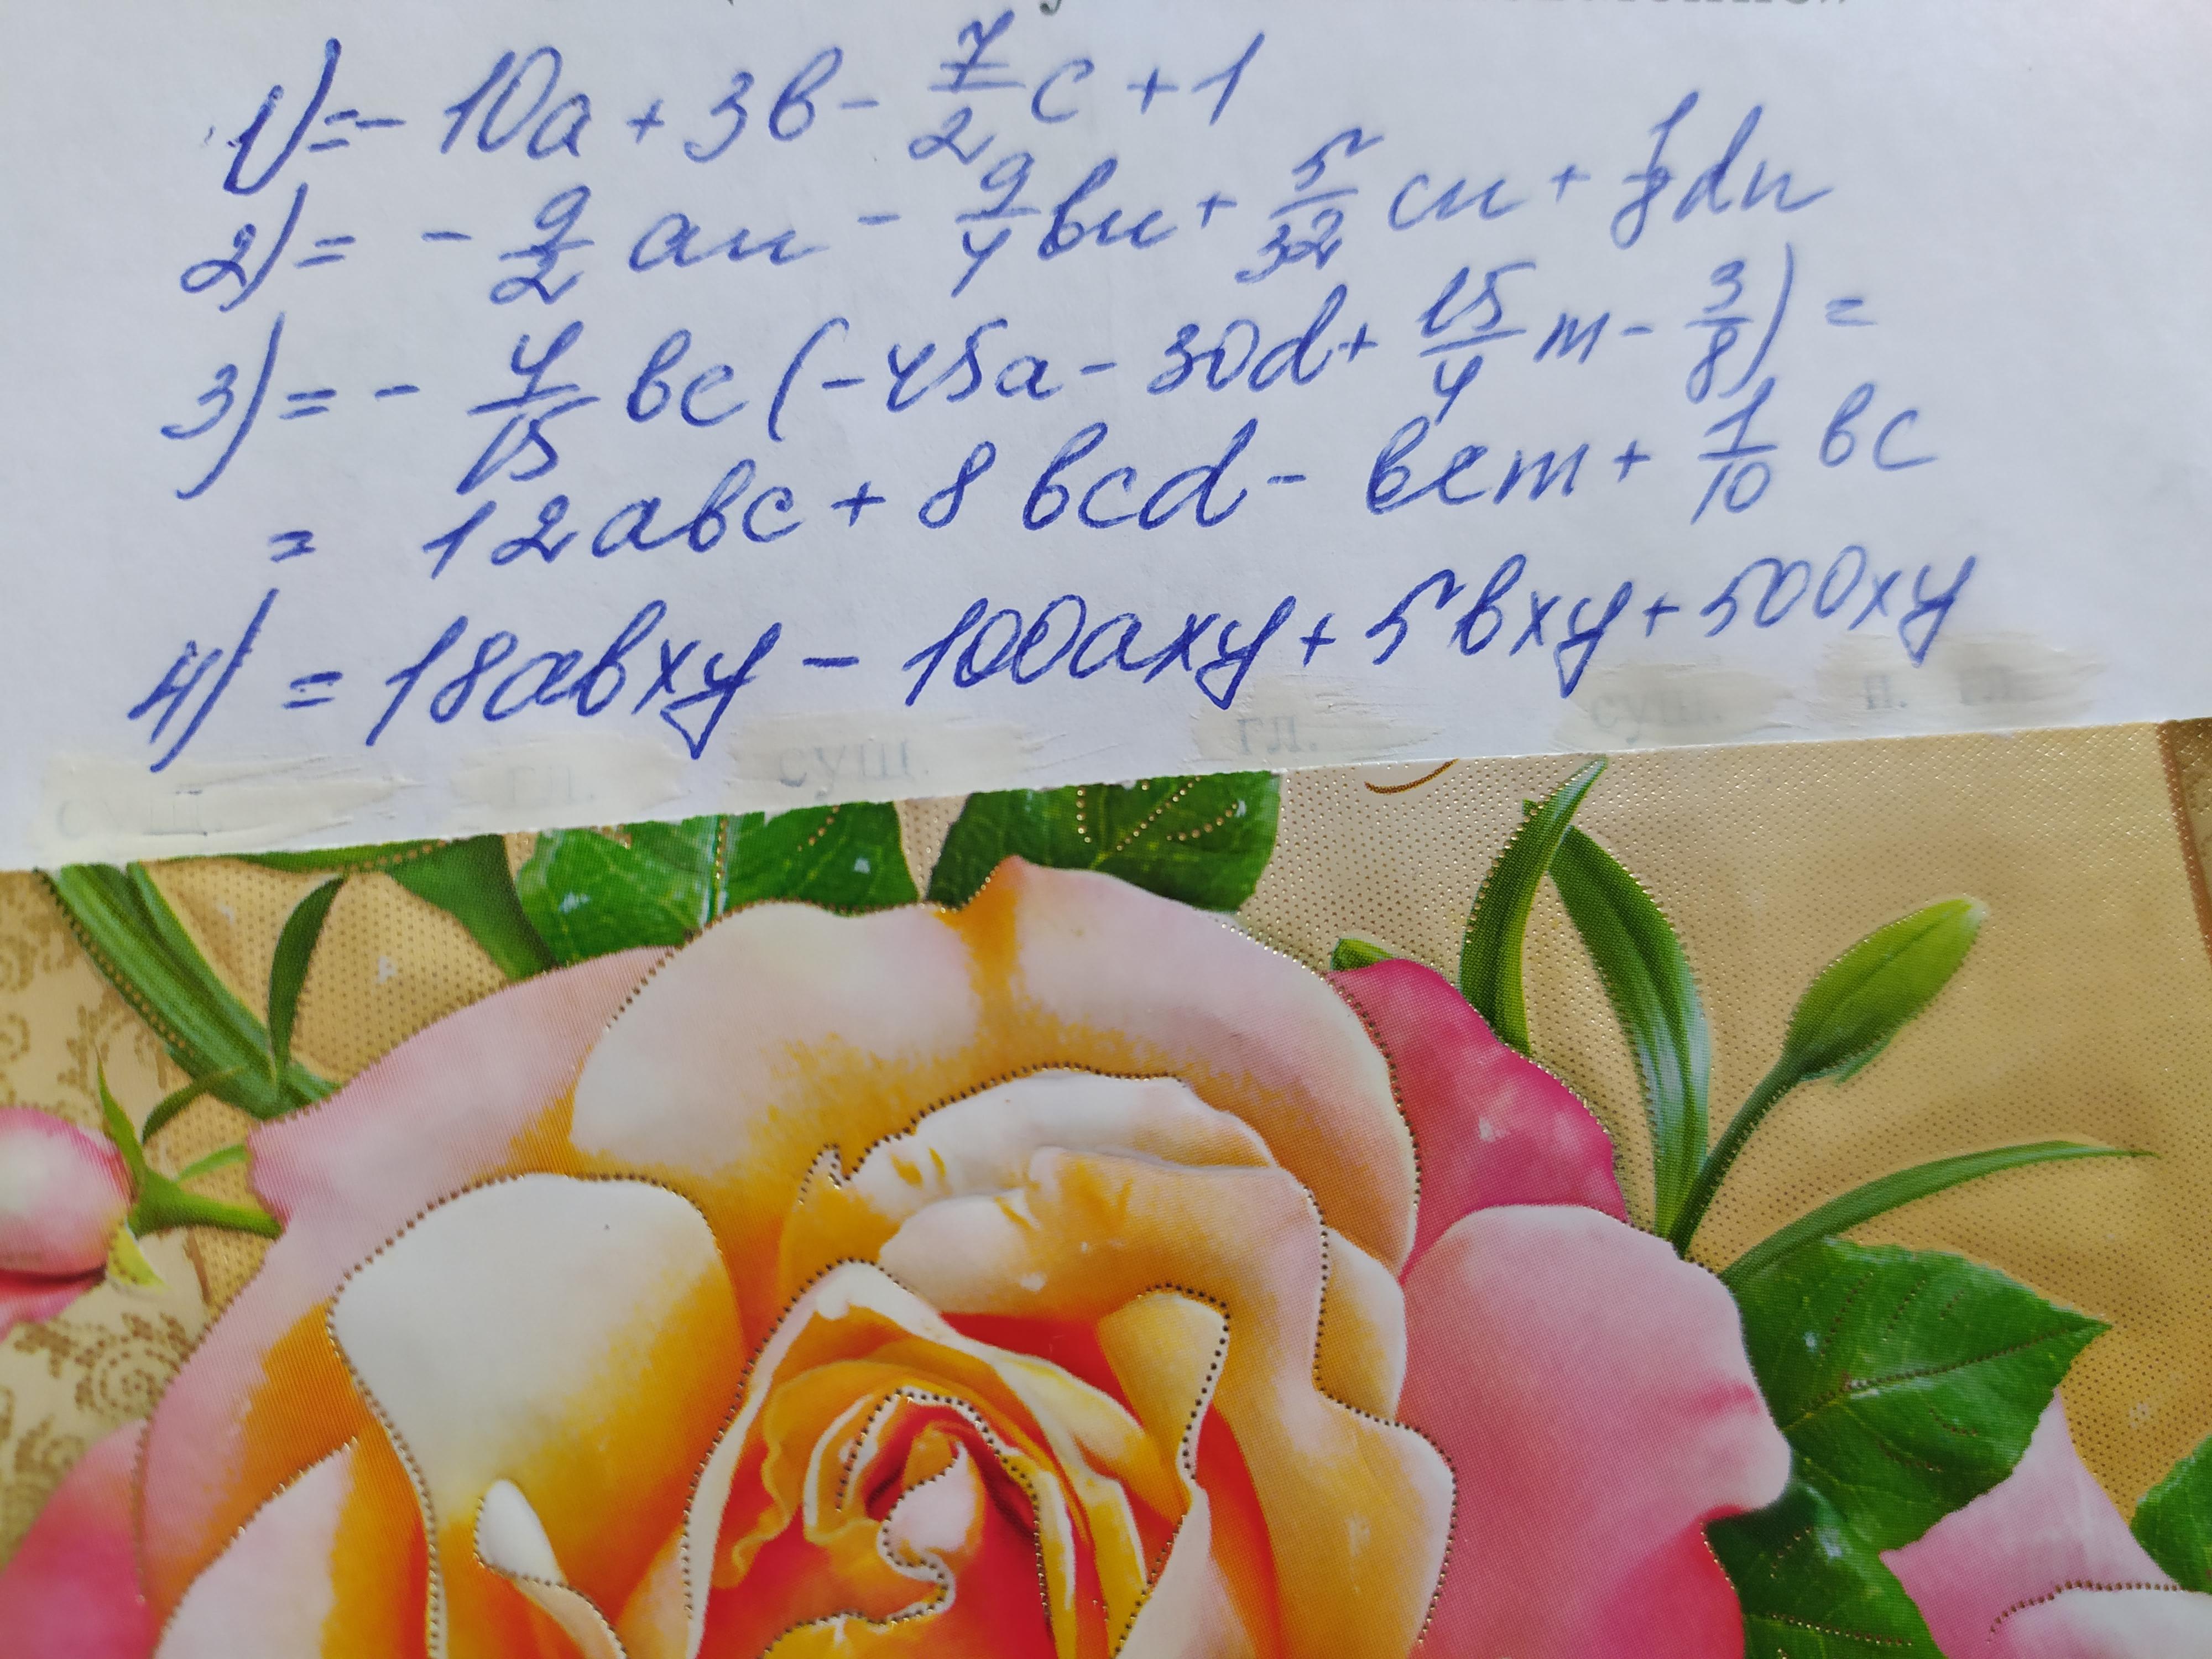 1) = - 10a + 3b - 7/2 c + 1
2) = - 9/2 an - 9/4 bn + 5/32 cn + 1/8 dn
3) = - 4/15 bc (-45a - 30d + 15/4 m - 3/8) =
= 12abc + 8bcd - bcm + 1/10 bc
4) = 18abxy - 100axy + 5bxy + 500xy
сущ. гл. сущ. гл. сущ. п. гл.